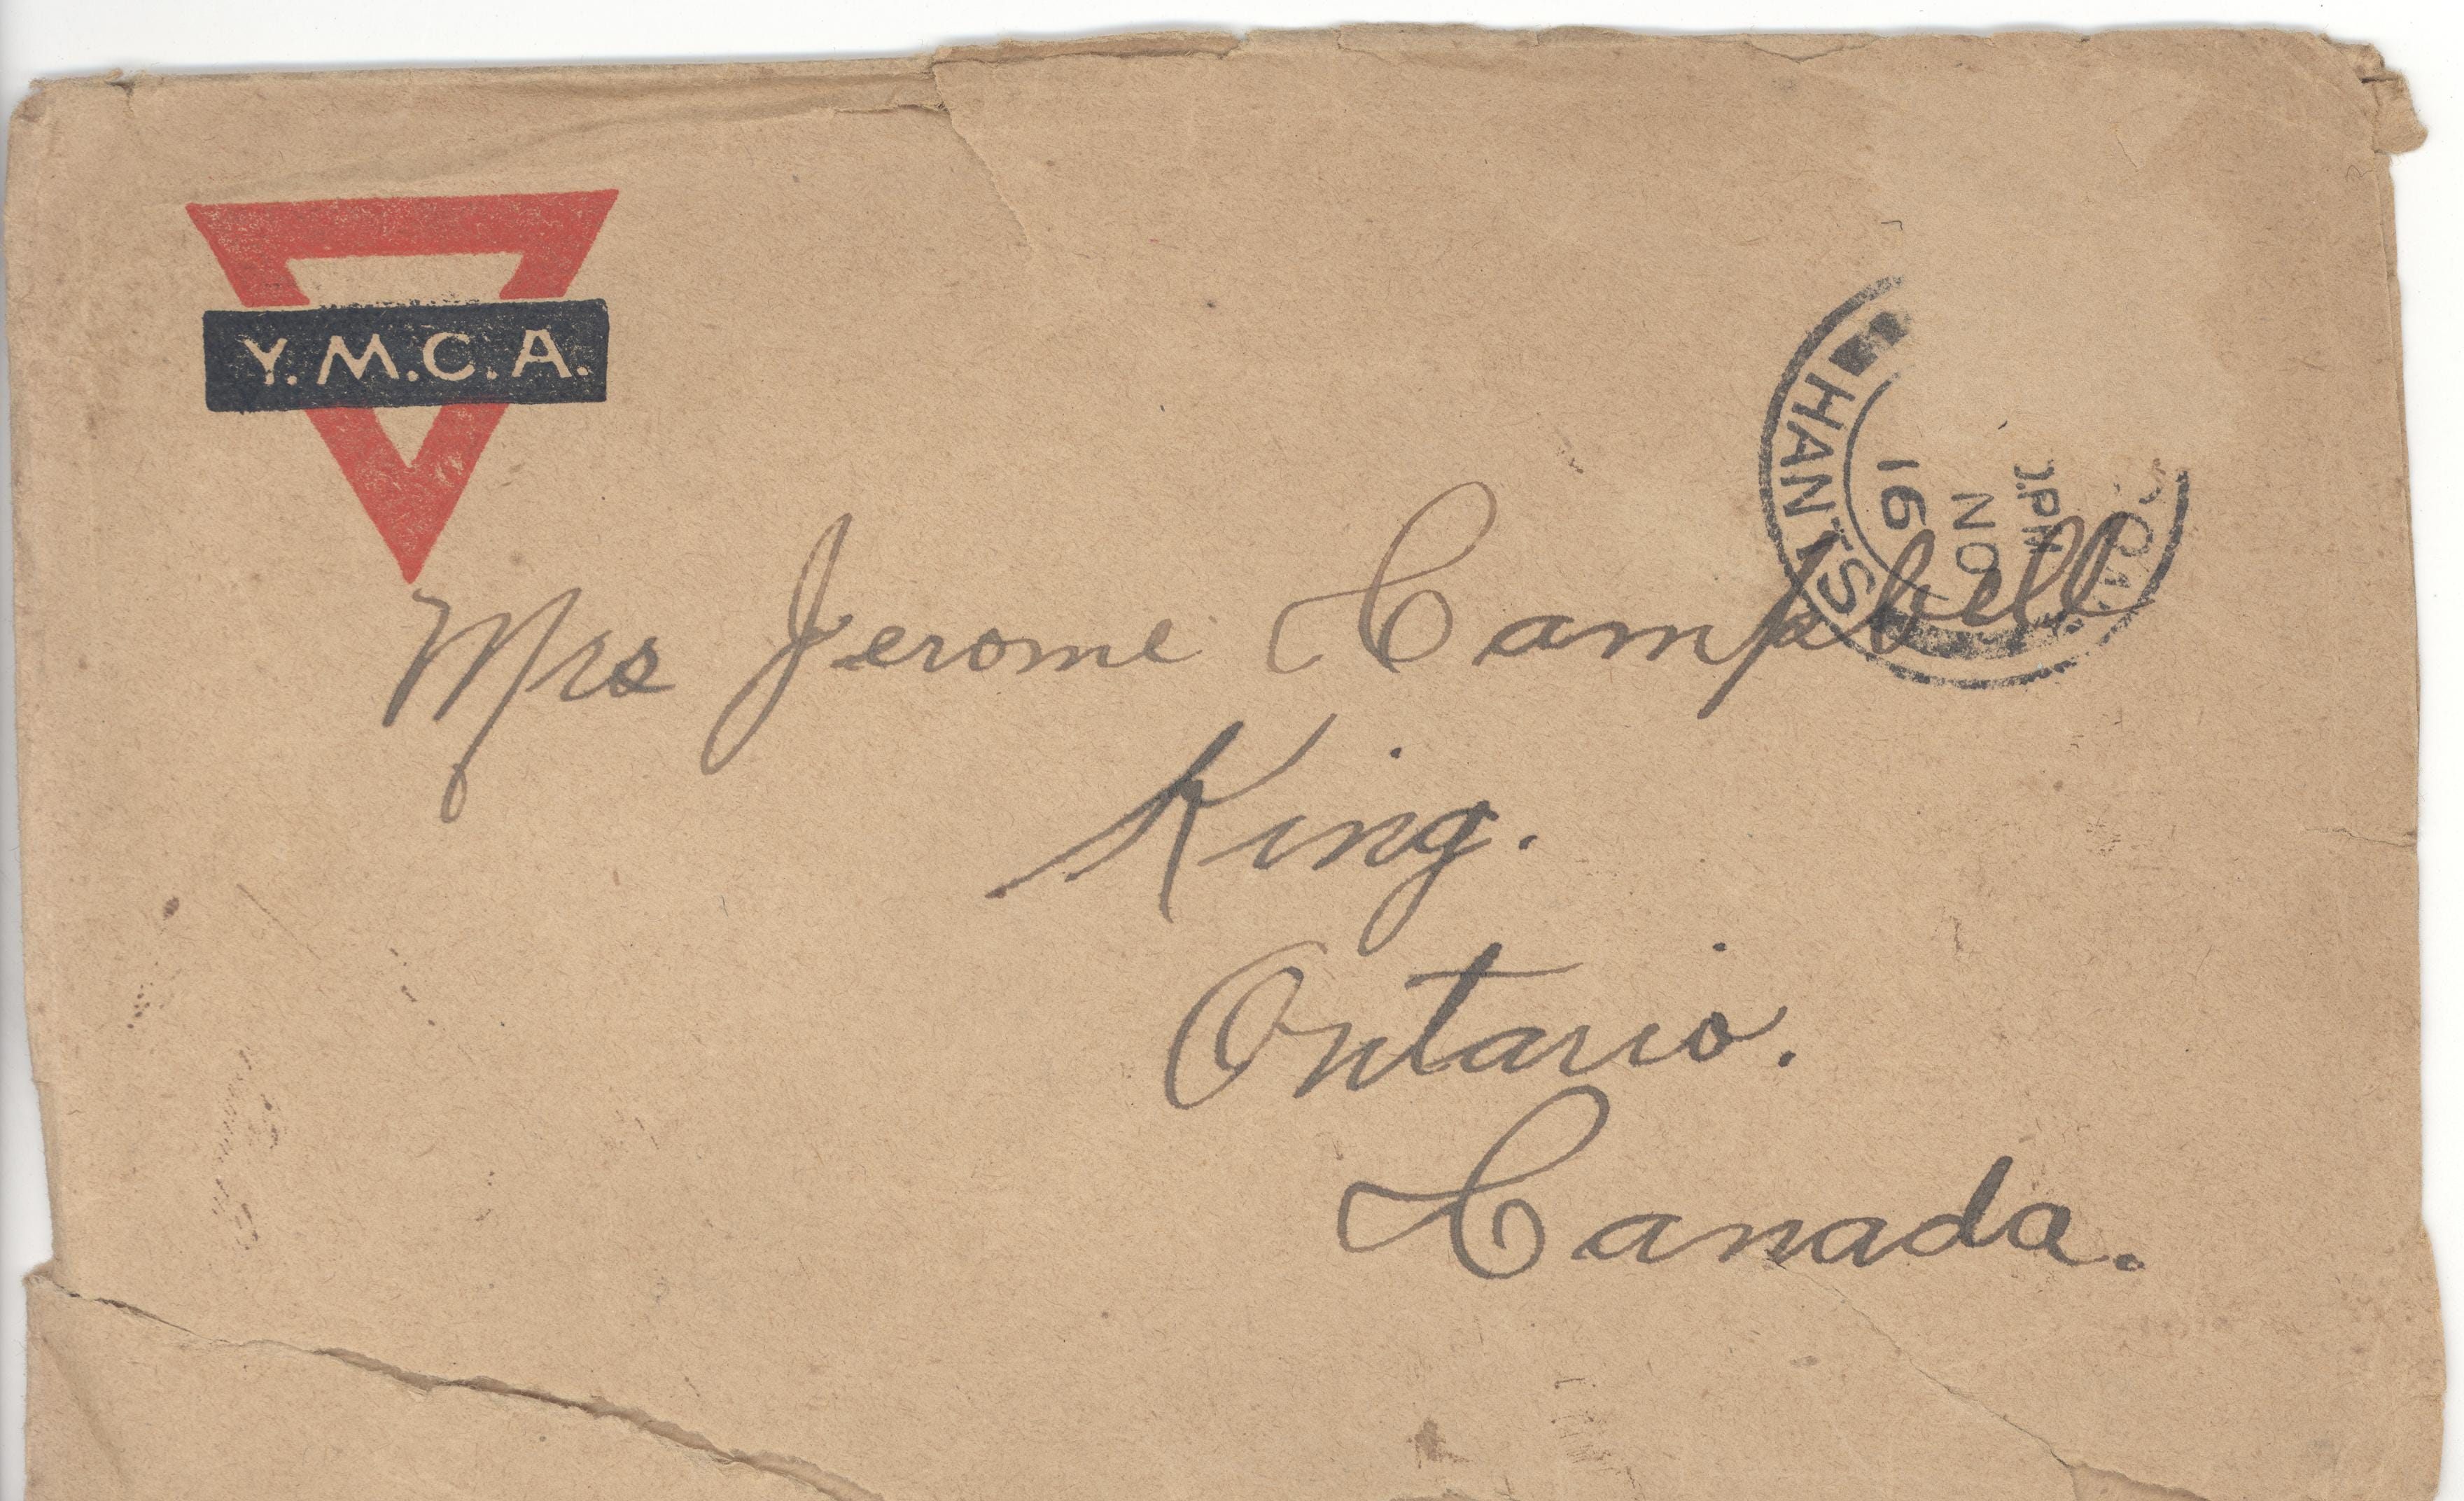 Y.M.C.A.
HANTS
NO
16
Mrs Jerome Campbell
King.
Ontario.
Canada.